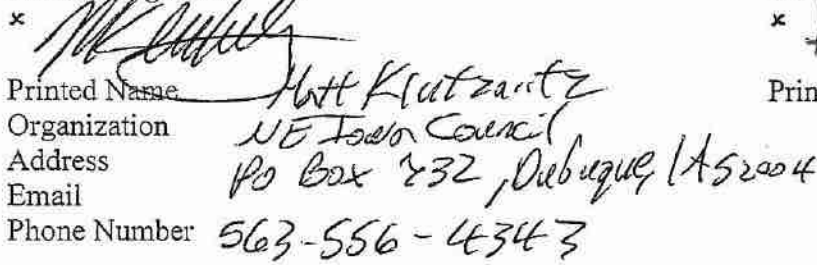 x x
Printed Name Matt Klutzaritz Prin
Organization NE Iowa Council
Address PO Box 732, Dubuque, IA 52004
Email
Phone Number 563-556-4343